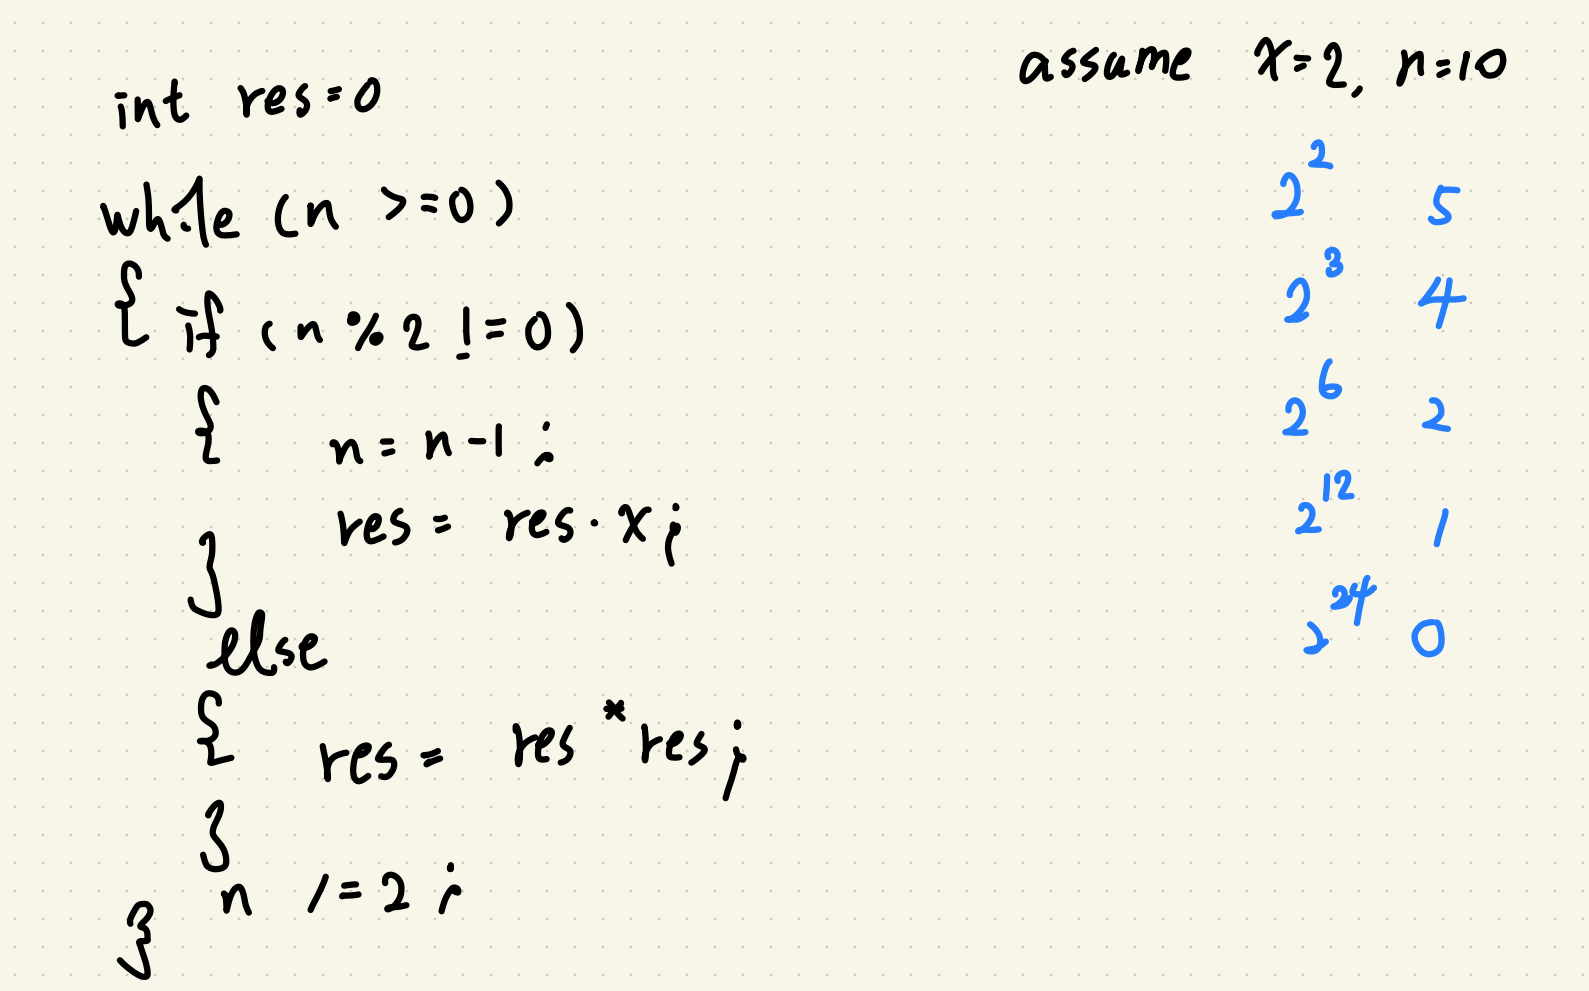 int res=0
while (n >=0)
{ if (n % 2 != 0)
{ n = n-1 ;
res = res · x ;
}
else
{ res = res * res ;
}
n /= 2 ;
}
assume x=2, n=10
2² 5
2³ 4
2⁶ 2
2¹² 1
2²⁴ 0